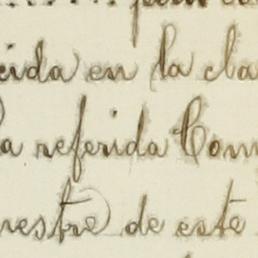 cida en la cla
a referida Com
restre de este